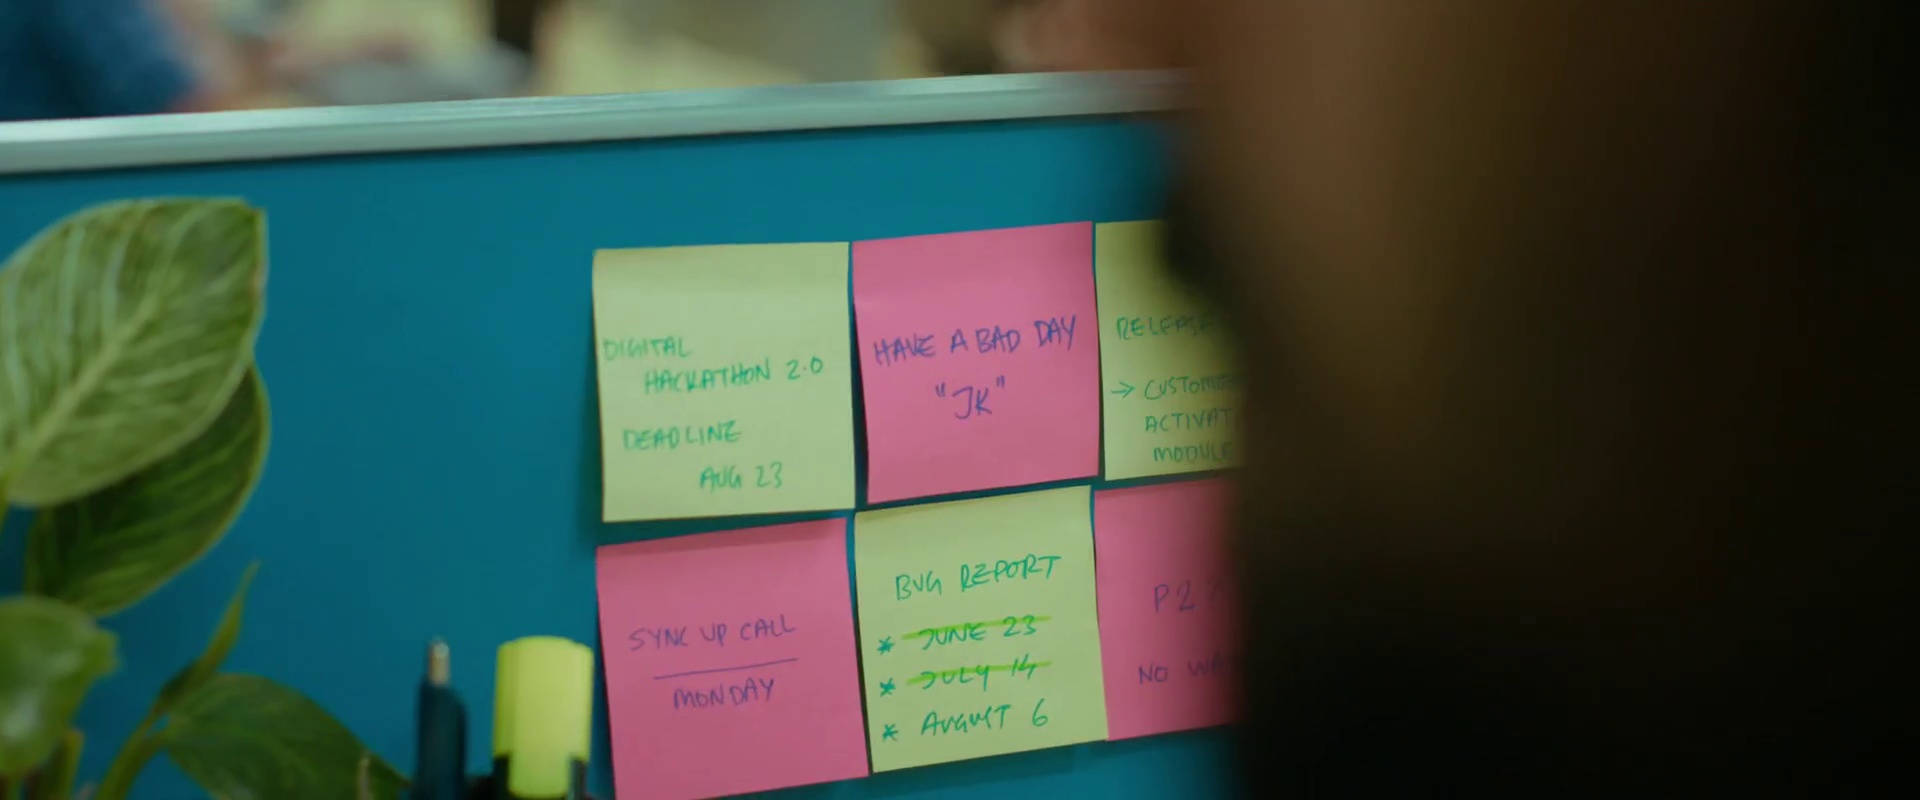 DIGITAL
HACKATHON 2.0
DEADLINE
AUG 23
HAVE A BAD DAY
"JK"
RELEASE
→ CUSTOM
ACTIVAT
MODULE
SYNC UP CALL
MONDAY
BUG REPORT
* JUNE 23
* JULY 14
* AUGUST 6
P2
NO